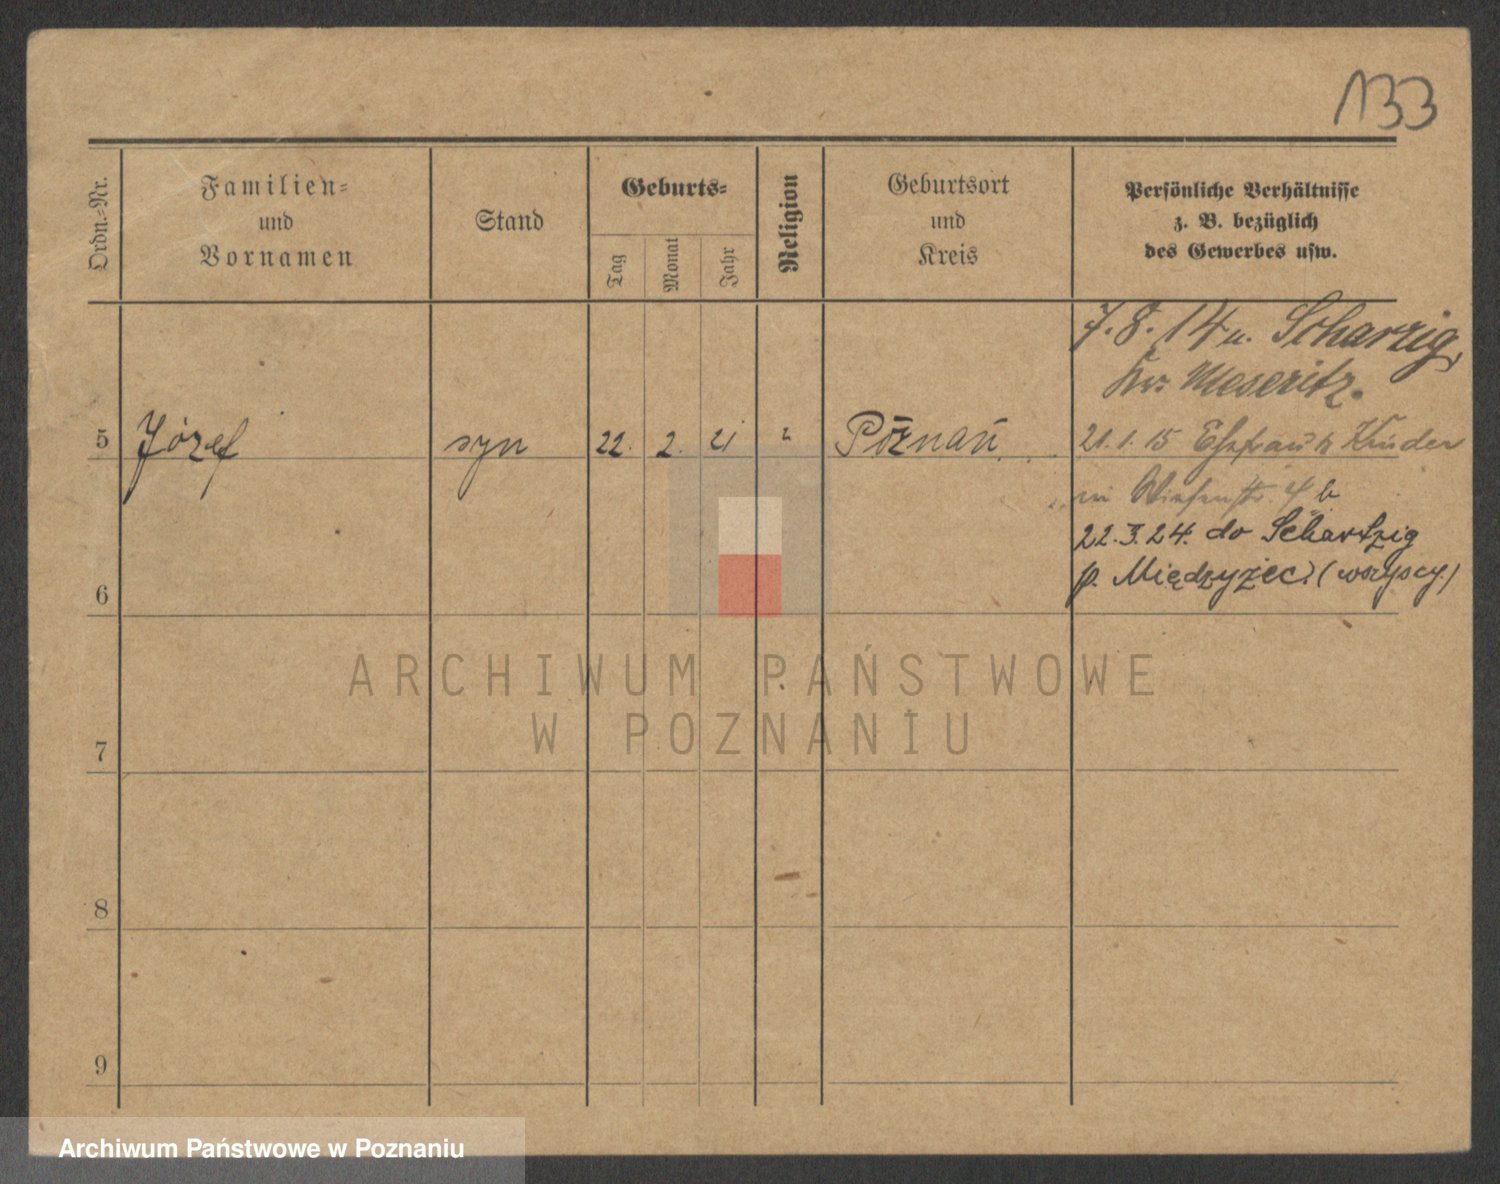 133
Ordn.-Nr.
Familien-
und
Vornamen
Stand
Geburts-
Tag
Monat
Jahr
Religion
Geburtsort
und
Kreis
Persönliche Verhältnisse
z. B. bezüglich
des Gewerbes usw.
7.8.14 n. Scharzig,
Krs. Meseritz.
5 Józef syn 22. 2. 21 " Poznań
21.1.15 Ehefrau u Kinder
Wiesenstr. 4 b
22.3.24. do Schartzig
p. Międzyżec. (wszyscy.)
6
7
8
9
ARCHIWUM PAŃSTWOWE
W POZNANIU
Archiwum Państwowe w Poznaniu